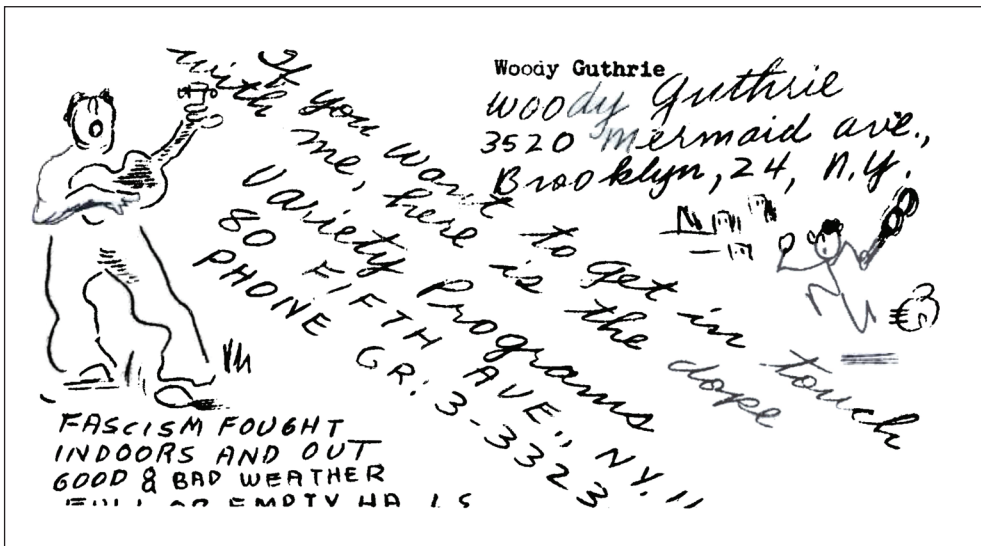 Woody Guthrie
Woody Guthrie
3520 Mermaid ave.,
Brooklyn, 24, N.Y.
If you want to get in touch
with me, here is the dope
Variety Programs
80 FIFTH AVE., NY. 11
PHONE GR: 3-3323
FASCISM FOUGHT
INDOORS AND OUT
GOOD & BAD WEATHER
FULL OR EMPTY HALLS